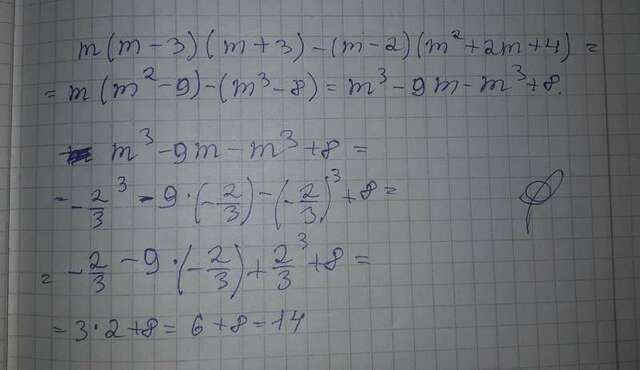 m(m-3)(m+3)-(m-2)(m²+2m+4)=
=m(m²-9)-(m³-8)=m³-9m-m³+8.
m³-9m-m³+8=
=-2/3³-9·(-2/3)-(-2/3)³+8=
=-2/3-9·(-2/3)+2/3³+8=
=3·2+8=6+8=14